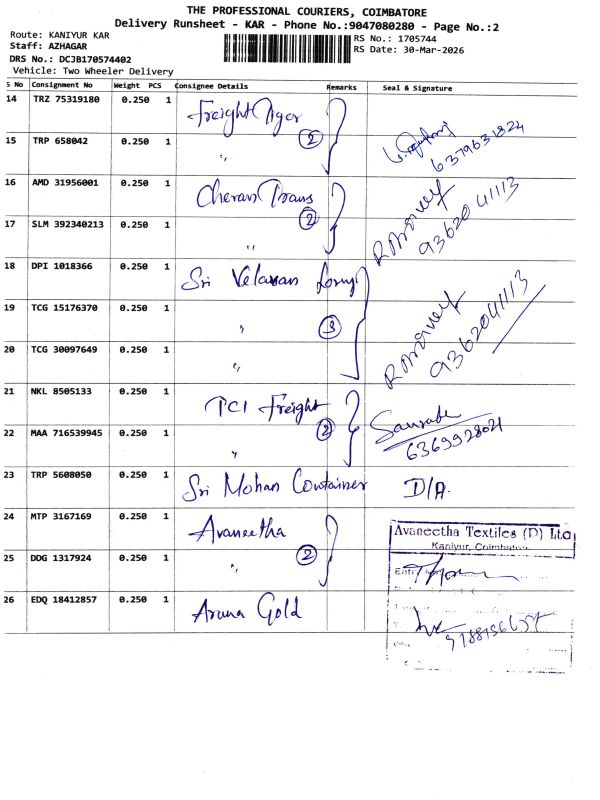 THE PROFESSIONAL COURIERS, COIMBATORE
Delivery Runsheet - KAR - Phone No.:9047080280 - Page No.:2
Route: KANIYUR KAR
RS No.: 1705744
Staff: AZHAGAR
RS Date: 30-Mar-2026
DRS No.: DCJB170574402
Vehicle: Two Wheeler Delivery
S No Consignment No Weight PCS Consignee Details Remarks Seal & Signature
14 TRZ 75319180 0.250 1 Freight Tiger
15 TRP 658042 0.250 1 " 2 6379631824
16 AMD 31956001 0.250 1 Cheran Trans 2
17 SLM 392340213 0.250 1 " 9362041113
18 DPI 1018366 0.250 1 Sri Velavan Lorry
19 TCG 15176370 0.250 1 " 3
20 TCG 30097649 0.250 1 " 9362041113
21 NKL 8505133 0.250 1 TCI Freight 2
22 MAA 716539945 0.250 1 " 6369928021
23 TRP 5608050 0.250 1 Sri Mohan Container D/A.
24 MTP 3167169 0.250 1 Avaneetha
Avaneetha Textiles (P) Ltd
Kaniyur, Coimbatore
25 DDG 1317924 0.250 1 " 2
26 EDQ 18412857 0.250 1 Aruna Gold